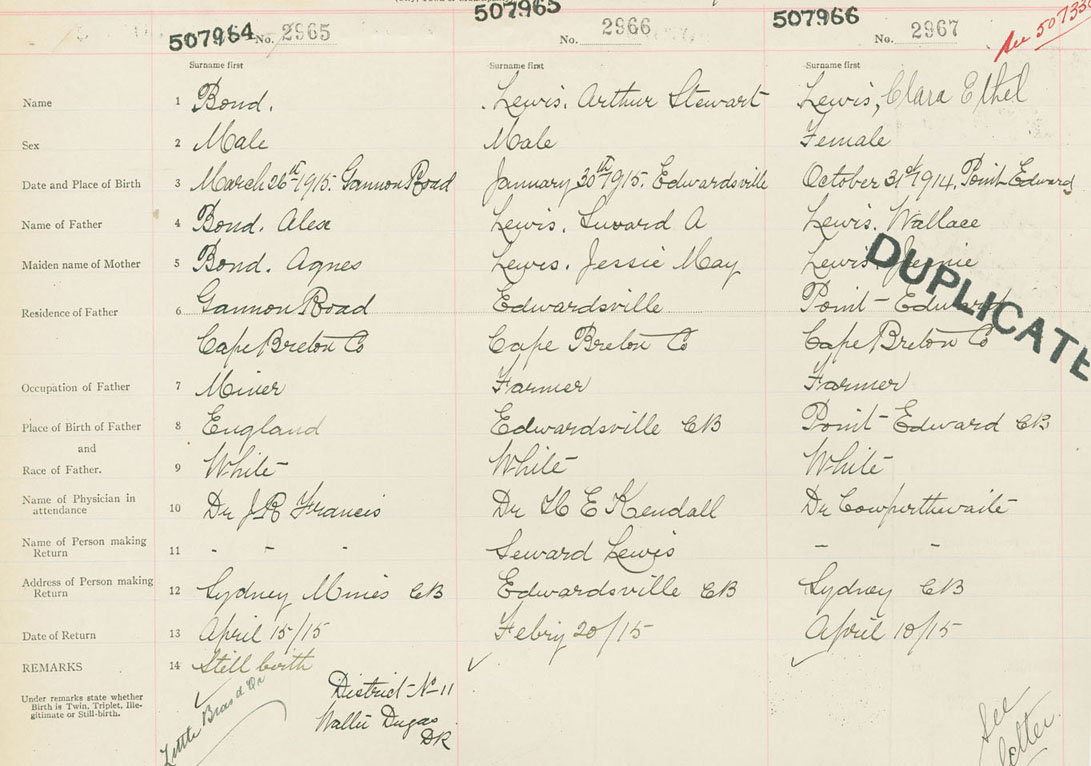 507964 No. 2965
507965
No. 2966
507966
No. 2967
See
Surname first
Surname first
Surname first
Name 1 Bond. Lewis. Arthur Stewart Lewis, Clara Ethel
Sex 2 Male Male Female
Date and Place of Birth 3 March 26th 1915. Gannon Road January 30th 1915. Edwardsville October 31st 1914, Point Edward
Name of Father 4 Bond. Alex Lewis. Suvard A Lewis. Wallace
Maiden name of Mother 5 Bond. Agnes Lewis. Jessie May Lewis. Jennie
DUPLICATE
Residence of Father 6 Gannon Road Edwardsville Point-Edward
Cape Breton Co Cape Breton Co Cape Breton Co
Occupation of Father 7 Miner Farmer Farmer
Place of Birth of Father 8 England Edwardsville CB Point-Edward CB
and
Race of Father. 9 White White White
Name of Physician in
attendance 10 Dr J R Francis Dr H E Kendall Dr Cowperthwaite
Name of Person making
Return 11 - - - Seward Lewis - -
Address of Person making
Return 12 Sydney Mines CB Edwardsville CB Sydney CB
Date of Return 13 April 15/15 Febry 20/15 April 10/15
REMARKS 14 Still birth
Under remarks state whether
Birth is Twin, Triplet, Ille-
gitimate or Still-birth.
Little Bras d'Or
District No 11
Dugas
DR
See
letter